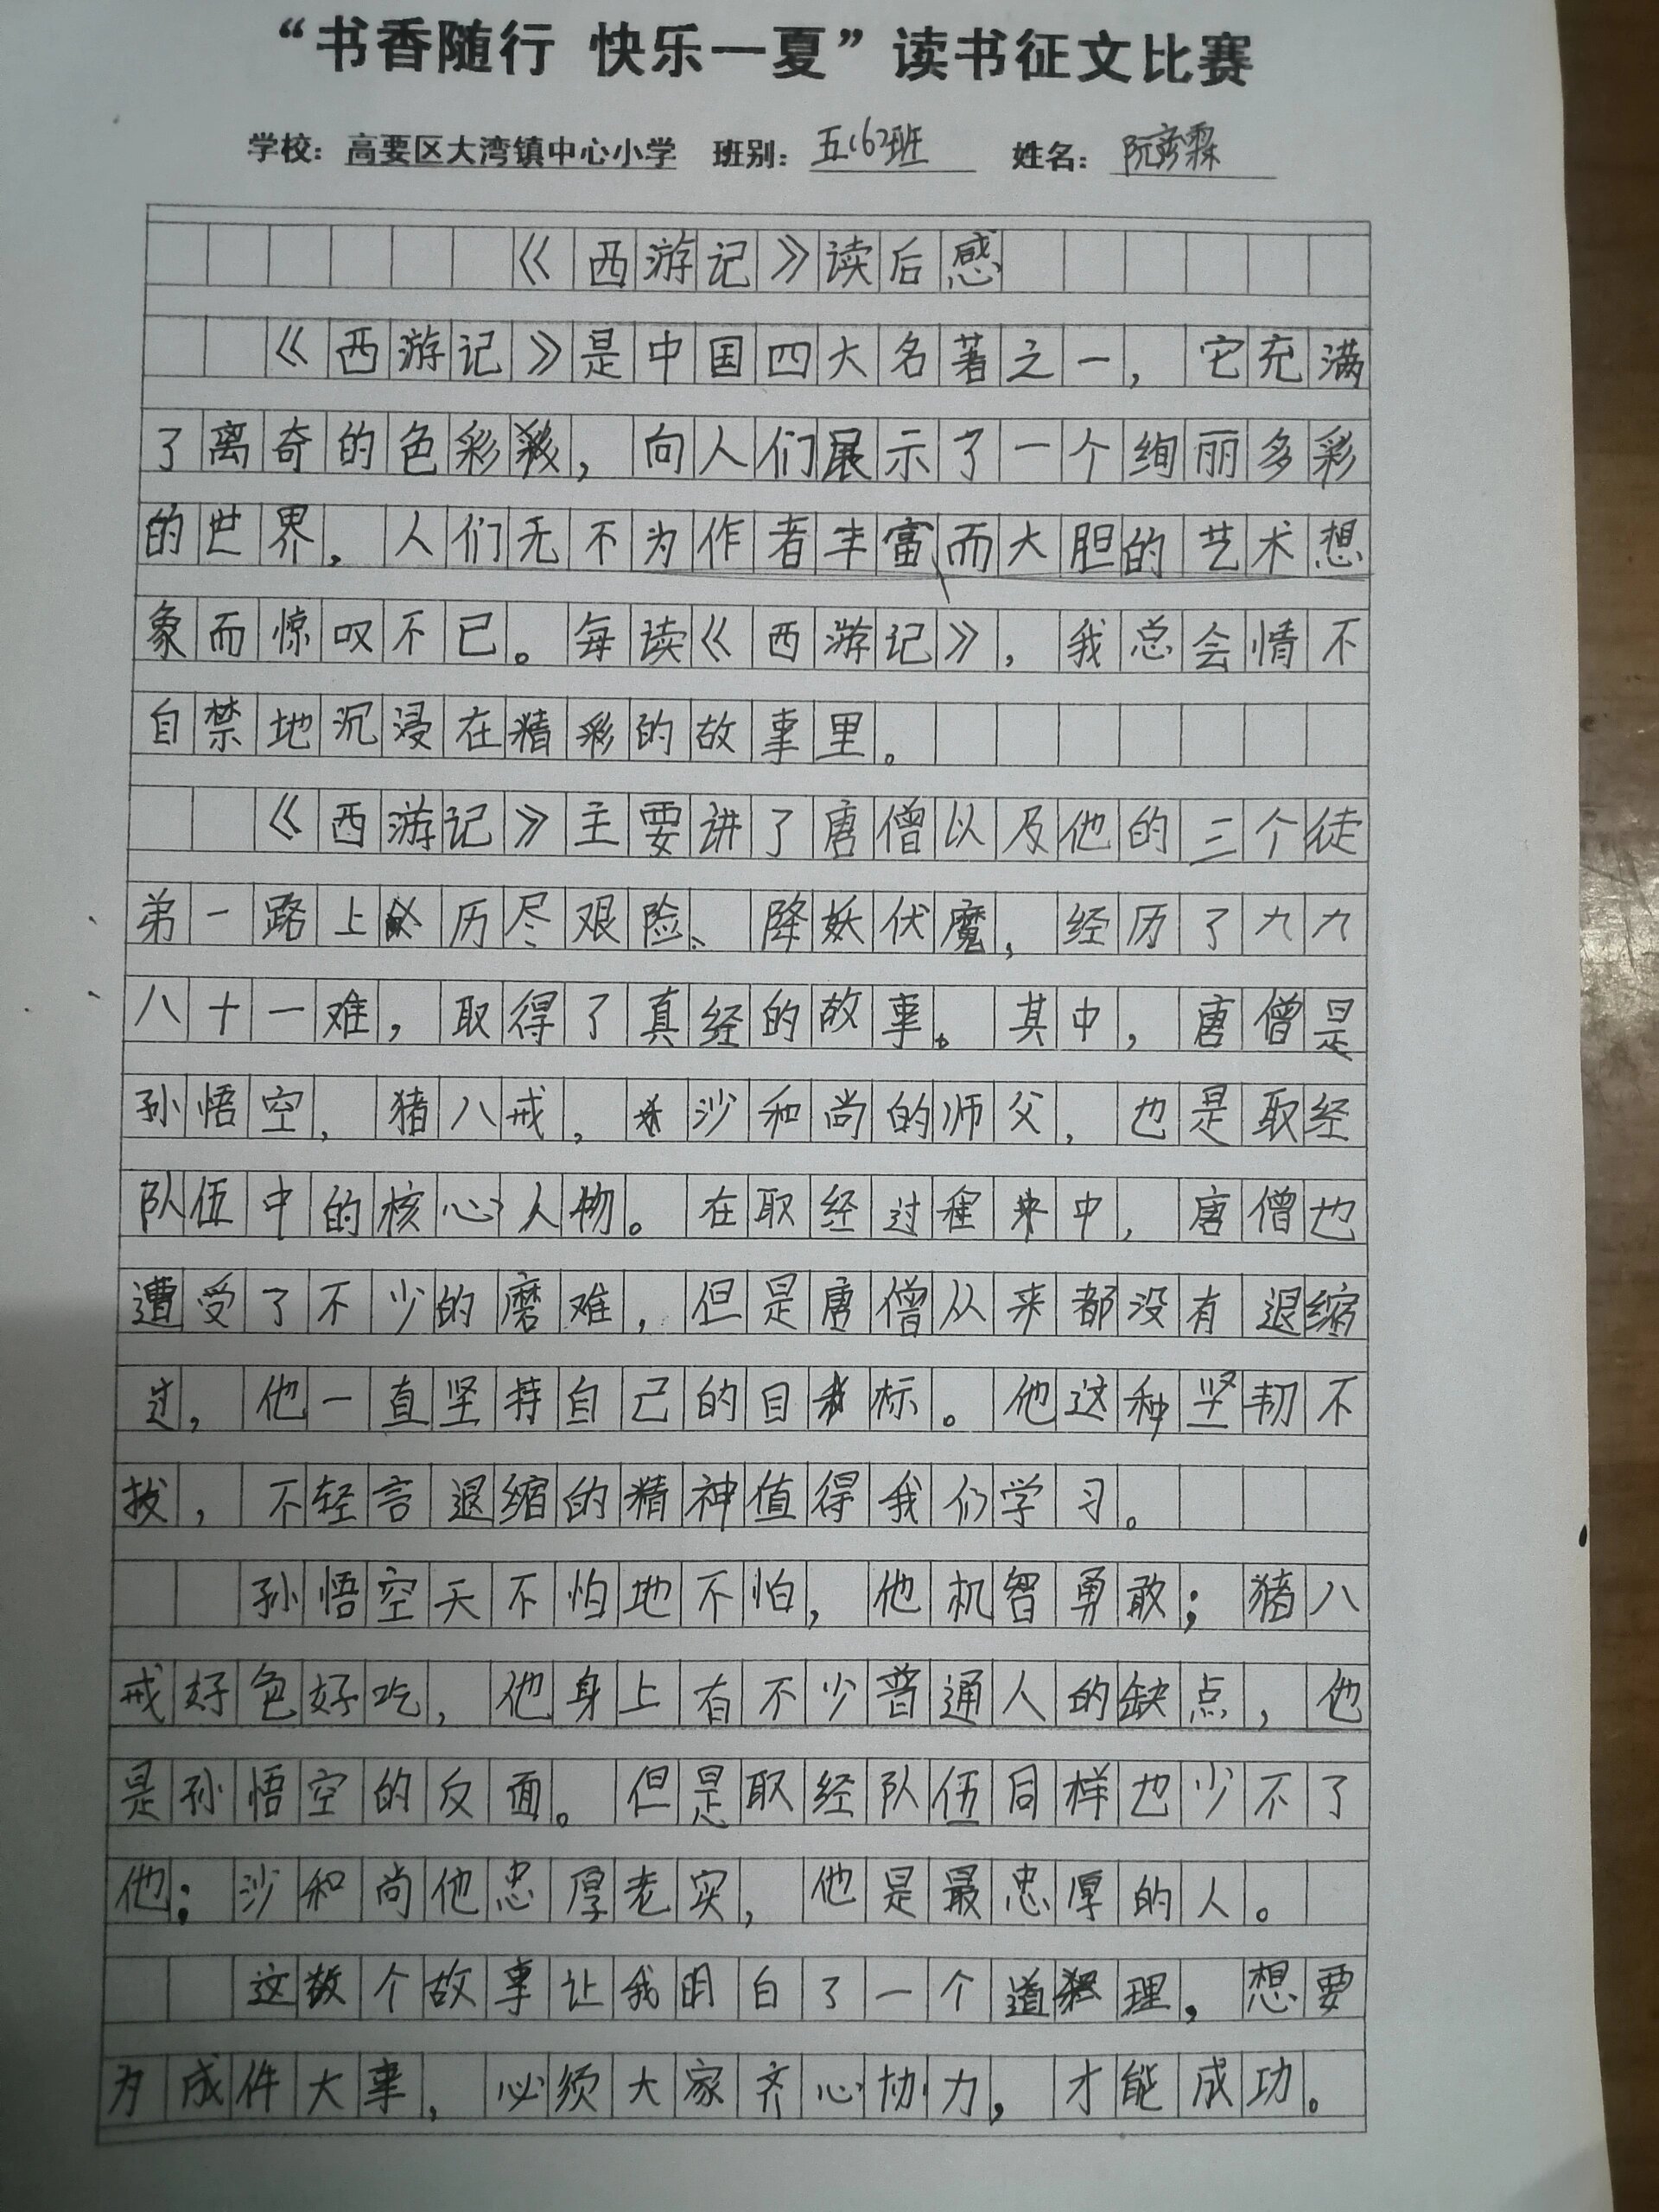 “书香随行 快乐一夏”读书征文比赛
学校：高要区大湾镇中心小学 班别：五(6)班 姓名：阮彦霖
《西游记》读后感
《西游记》是中国四大名著之一，它充满
了离奇的色彩，向人们展示了一个绚丽多彩
的世界，人们无不为作者丰富而大胆的艺术想
象而惊叹不已。每读《西游记》，我总会情不
自禁地沉浸在精彩的故事里。
《西游记》主要讲了唐僧以及他的三个徒
弟一路上历尽艰险、降妖伏魔，经历了九九
八十一难，取得了真经的故事。其中，唐僧是
孙悟空，猪八戒，沙和尚的师父，也是取经
队伍中的核心人物。在取经过程中，唐僧也
遭受了不少的磨难，但是唐僧从来都没有退缩
过，他一直坚持自己的目标。他这种坚韧不
拔，不轻言退缩的精神值得我们学习。
孙悟空天不怕地不怕，他机智勇敢；猪八
戒好色好吃，他身上有不少普通人的缺点，他
是孙悟空的反面。但是取经队伍同样也少不了
他；沙和尚他忠厚老实，他是最忠厚的人。
这个故事让我明白了一个道理，想要
为成件大事，必须大家齐心协力，才能成功。